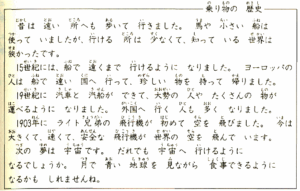 乗り物の 歴史
昔は 遠い 所へも 歩いて 行きました。 馬や 小さい 船は
使って いましたが、行ける 所は 少なくて、知って いる 世界は
狭かったです。
15世紀には、船で 遠くまで 行けるように なりました。 ヨーロッパの
人は 船で 遠い 国へ 行って、珍しい 物を 持って 帰りました。
19世紀に 汽車と 汽船が できて、大勢の 人や たくさんの 物が
運べるように なりました。 外国へ 行く 人も 多く なりました。
1903年に ライト 兄弟の 飛行機が 初めて 空を 飛びました。 今は
大きくて、速くて、安全な 飛行機が 世界の 空を 飛んで います。
次の 夢は 宇宙です。 だれでも 宇宙へ 行けるように
なるでしょうか。 月で 青い 地球を 見ながら 食事できるように
なるかも しれませんね。